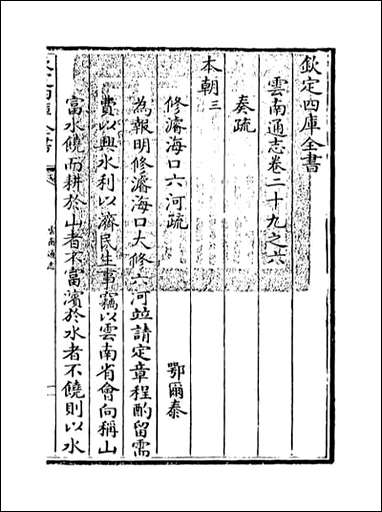 欽定四庫全書
雲南通志卷二十九之六
奏疏
本朝三
修濬海口六河疏 鄂爾泰
為報明修濬海口大修六河並請定章程酌留需
費以興水利以濟民生事竊以雲南省會向稱山
富水饒而耕於山者不富濱於水者不饒則以水
雲南通志